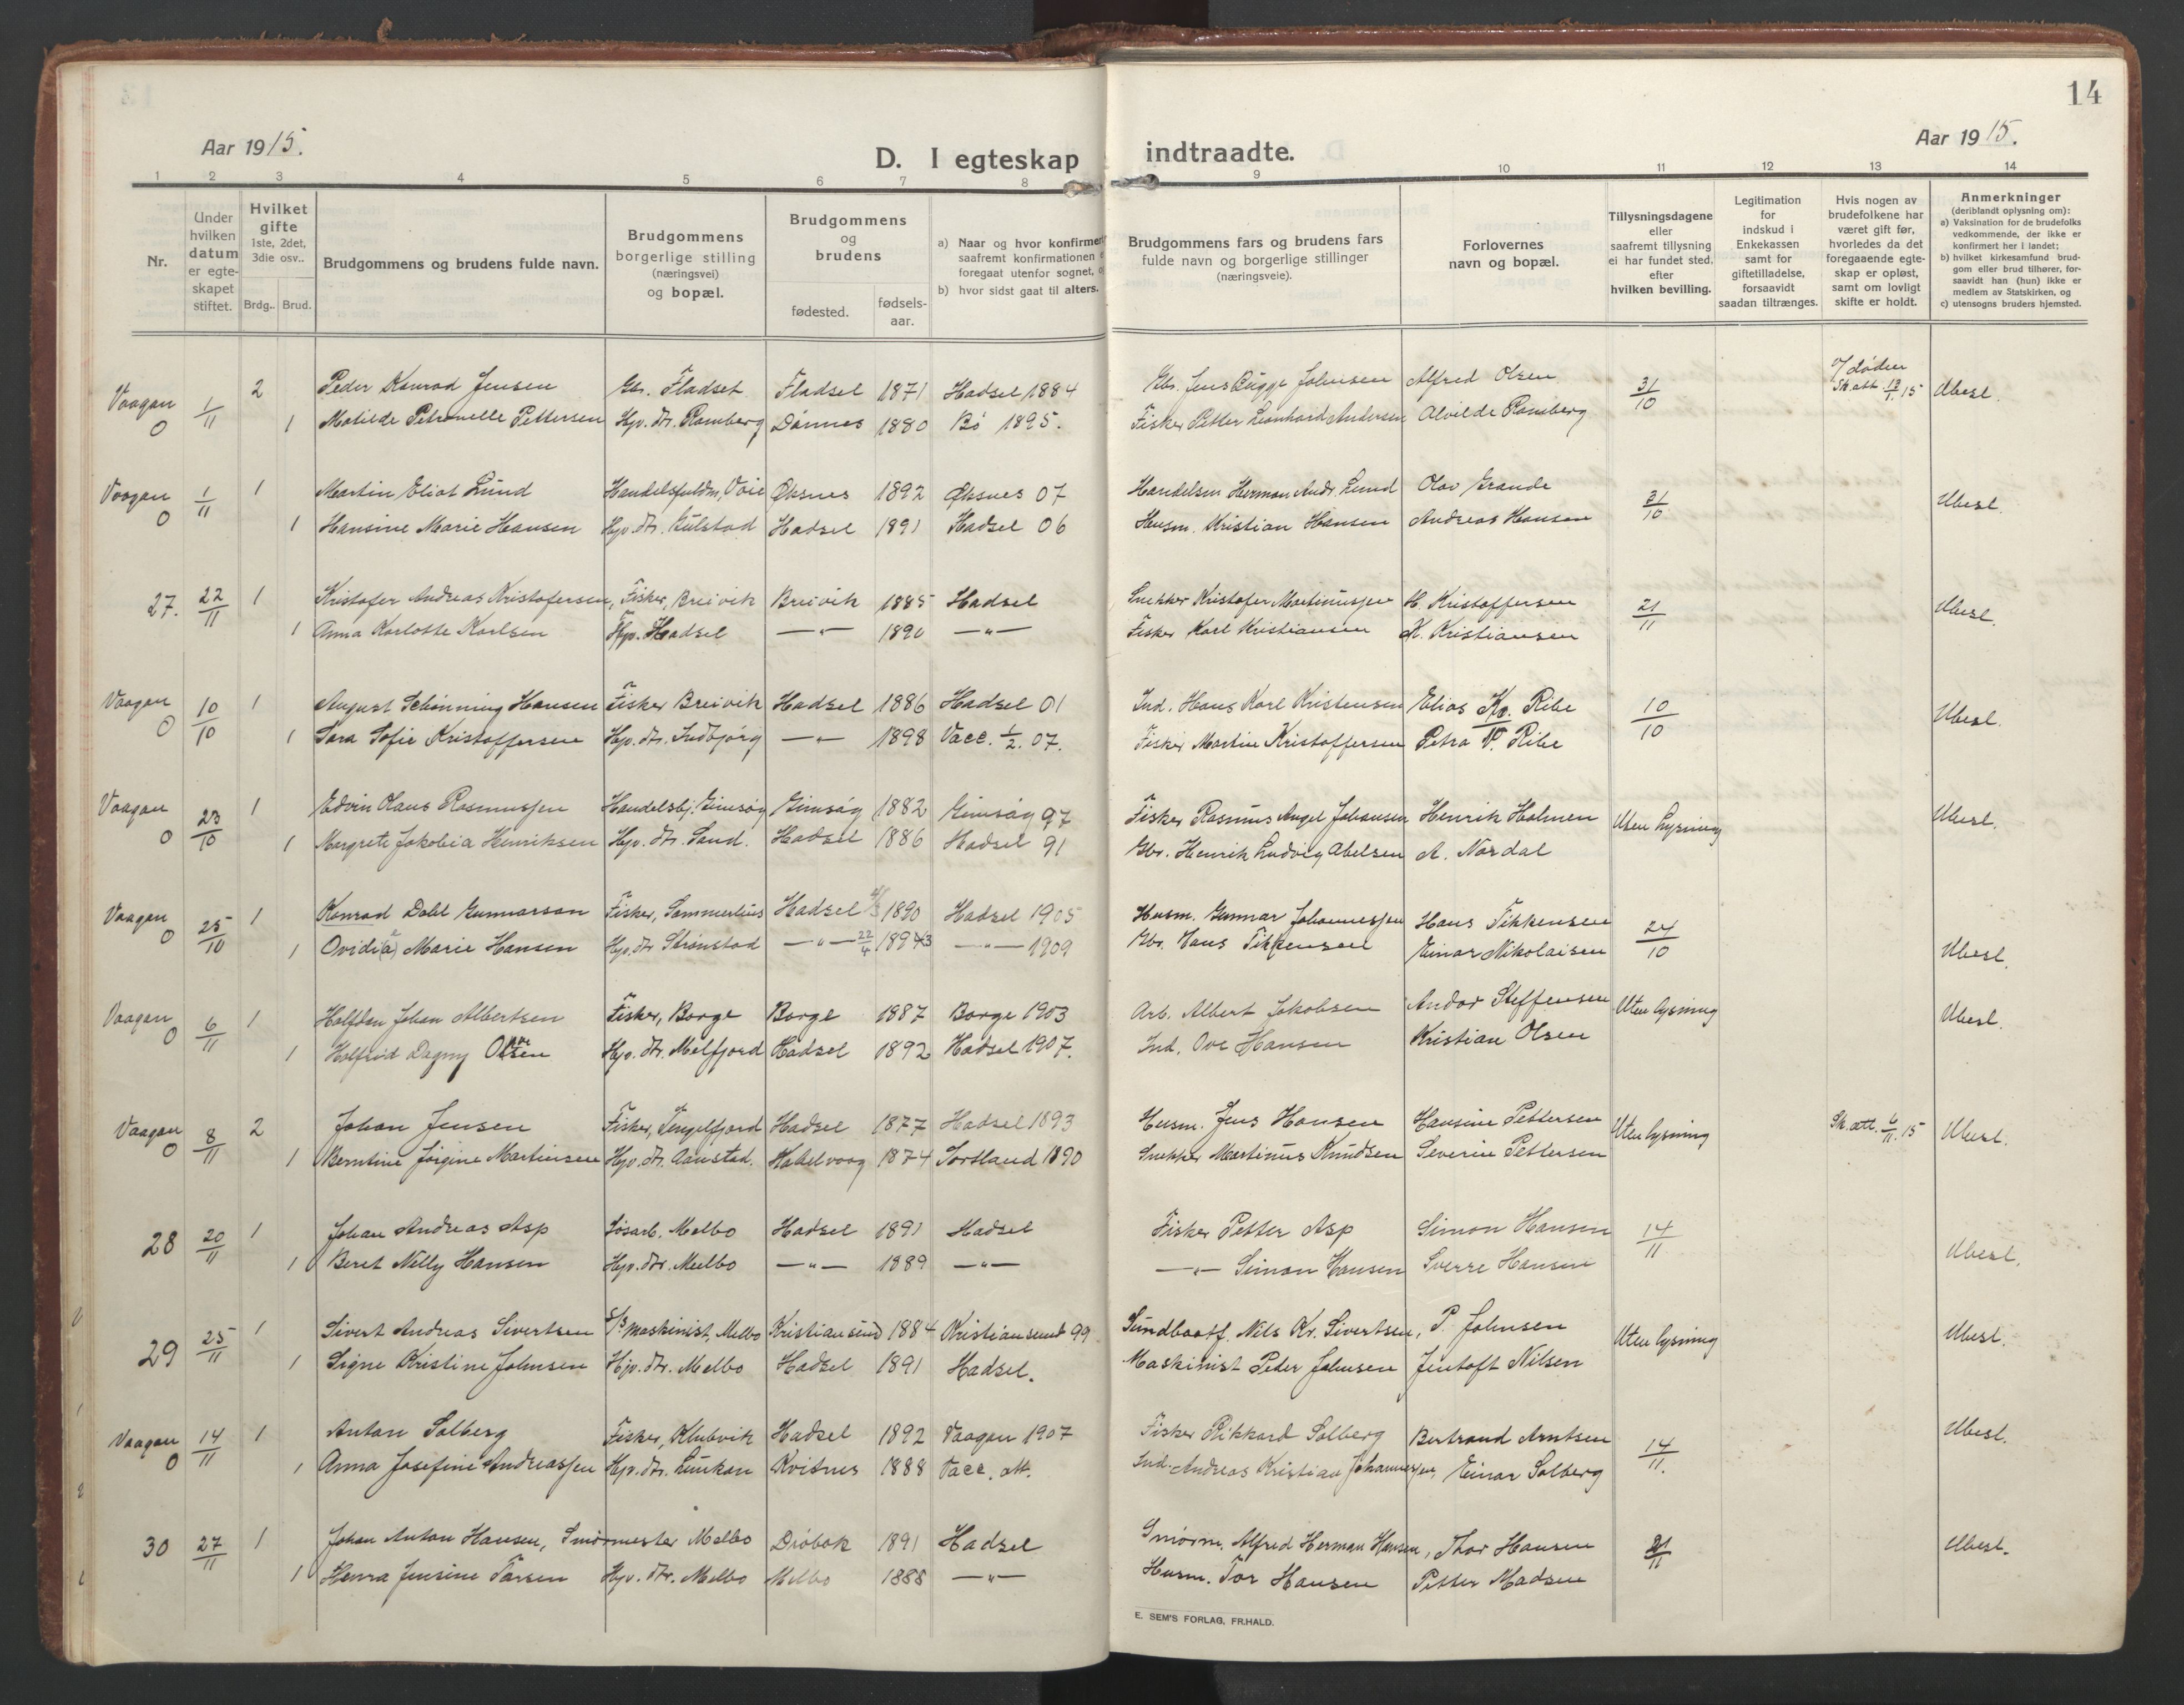 14
Aar 1915.
D. I egteskap indtraadte.
Aar 1915.
1 2 3 4 5 6 7 8 9 10 11 12 13 14
Nr.
Under hvilken datum er egteskapet stiftet.
Hvilket gifte 1ste, 2det, 3die osv.. Brdg.. Brud.
Brudgommens og brudens fulde navn.
Brudgommens borgerlige stilling (næringsvei) og bopæl.
Brudgommens og brudens fødested. fødsels-aar.
a) Naar og hvor konfirmert saafremt konfirmationen foregaat utenfor sognet,
b) hvor sidst gaat til alters.
Brudgommens fars og brudens fars fulde navn og borgerlige stillinger (næringsveie).
Forlovernes navn og bopæl.
Tillysningsdagene eller saafremt tillysning ei har fundet sted. efter hvilken bevilling.
Legitimation for indskud i Enkekassen samt for giftetilladelse, forsaavidt saadan tiltrænges.
Hvis nogen av brudefolkene har været gift før, hvorledes da det foregaaende egteskap er opløst, samt om lovligt skifte er holdt.
Anmerkninger (deriblandt oplysning om):
a) Vaksination for de brudefolks vedkommende, der ikke er konfirmert her i landet;
b) hvilket kirkesamfund brudgom eller brud tilhører, forsaavidt han (hun) ikke er medlem av Statskirken, og
c) utensogns bruders hjemsted.
Vaagan 0 1/11 2 Peder Konrad Jensen Gbr. Fladset Fladset 1871 Hadsel 1884 Gbr. Jens Bügge Johnsen Alfred Olsen 31/10 døden Sk. att. 15 Ubesl.
1 Matilde Petronelle Pettersen Hjv. dtr. Ramberg Dønnes 1880 Bø 1895. Fisker Petter Leonhard Andersen Alvilde Ramberg
Vaagan 0 1/11 1 Martin Eliot Lund Handelsfuldm, Voie Øksnes 1892 Øksnes 07 Handelsm Herman Andr. Lund Olav Grande 31/10 Ubesl.
1 Hansine Marie Hansen Hjv. dtr. Gulstad Hadsel 1891 Hadsel 06 Husm. Kristian Hansen Andreas Hansen
27. 22/11 1 Kristofer Andreas Kristofersen, Fisker, Breivik Breivik 1885 Hadsel Snekker Kristofer Martinussen H. Kristoffersen 21/11 Ubesl.
1 Anna Karlotte Karlsen Hjv. Hadsel —"— 1890 —"— Fisker Karl Kristiansen K. Kristiansen
Vaagan 0 10/10 1 August Schönning Hansen Fisker Breivik Hadsel 1886 Hadsel 01 Ind. Hans Karl Kristensen Elias Kr. Ribe 10/10 Ubesl.
1 Sara Sofie Kristoffersen Hjv. dtr. Indbjörg —"— 1898 Vacc. 1/2. 07. Fisker Martin Kristoffersen Petra P. Ribe
Vaagan 0 23/10 1 Edvin Olaus Rasmussen Handelsbj. Gimsøy Gimsøy 1882 Gimsøy 97 Fisker Rasmus Angel Johansen Henrik Holmen Uten lysning Ubesl.
1 Margrete Jakobia Henriksen Hjv. dtr. Sand. Hadsel 1886 Hadsel 91 Gbr. Henrik Ludvig Abelsen A. Nordal
Vaagan 0 25/10 1 Konrad Dahl Gunnarson Fisker, Sommerhus Hadsel 1890 Hadsel 1905 Husm. Gunnar Johannessen Hans Fikkensen 24/10 Ubesl.
1 Ovidi(a) Marie Hansen Hjv. dtr Strønstad —"— 22/4 1893 —"— 1909 Gbr. Hans Fikkensen Einar Nikolaisen
Vaagan 0 6/11 1 Halfdan Johan Albertsen Fisker, Borge Borge 1887 Borge 1903 Arb. Albert Jakobsen Andor Steffensen Uten lysning Ubesl.
1 Halfrid Dagny Olsen Hjv. dtr. Melfjord Hadsel 1892 Hadsel 1907. Ind. Ove Hansen Kristian Olsen
Vaagan 0 8/11 2 Johan Jensen Fisker, Tengelfjord Hadsel 1877 Hadsel 1893 Husm. Jens Hansen Hansine Pettersen Uten lysning Sk. att. 6/11. 15 Ubesl.
1 Berntine Jörgine Martinsen Hjv. dtr. Aanstad. Habelvaag 1874 Sortland 1890 Snekker Martinus Knudsen Severin Pettersen
28 20/11 1 Johan Andreas Asp Løsarb. Melbo Hadsel 1891 Hadsel Fisker Petter Asp Simon Hansen 14/11 Ubesl.
1 Beret Nelly Hansen Hjv. dtr. Melbo —"— 1889 —"— —"— Simon Hansen Sverre Hansen
29 25/11 1 Sivert Andreas Sivertsen maskinist, Melbo Kristiansund 1884 Kristiansund 99 Sundbaatf. Nils Kr. Sivertsen, P. Johnsen Uten lysning Ubesl.
1 Signe Kristine Johnsen Hjv. dtr. Melbo Hadsel 1891 Hadsel. Maskinist Peder Johnsen Jentoft Nilsen
Vaagan 0 14/11 1 Anton Solberg Fisker, Klubvik Hadsel 1892 Vaagan 1907 Fisker Rikkard Solberg Bertrand Arntsen 14/11. Ubesl.
1 Anna Josefine Andreassen Hjv. dtr. Lunkan Kvitnes 1888 Vacc. att. Ind. Andreas Kristian Johannessen, Einar Solberg
30 27/11 1 Johan Anton Hansen, Smørmester Melbo Drøbak 1891 Hadsel Smørm. Alfred Herman Hansen, Thor Hansen 21/11 Ubesl.
1 Henra Jensine Torsen Hjv. dtr. Melbo Melbo 1888 —"— Husm. Tor Hansen Petter Madsen
E. SEM'S FORLAG, FR.HALD.